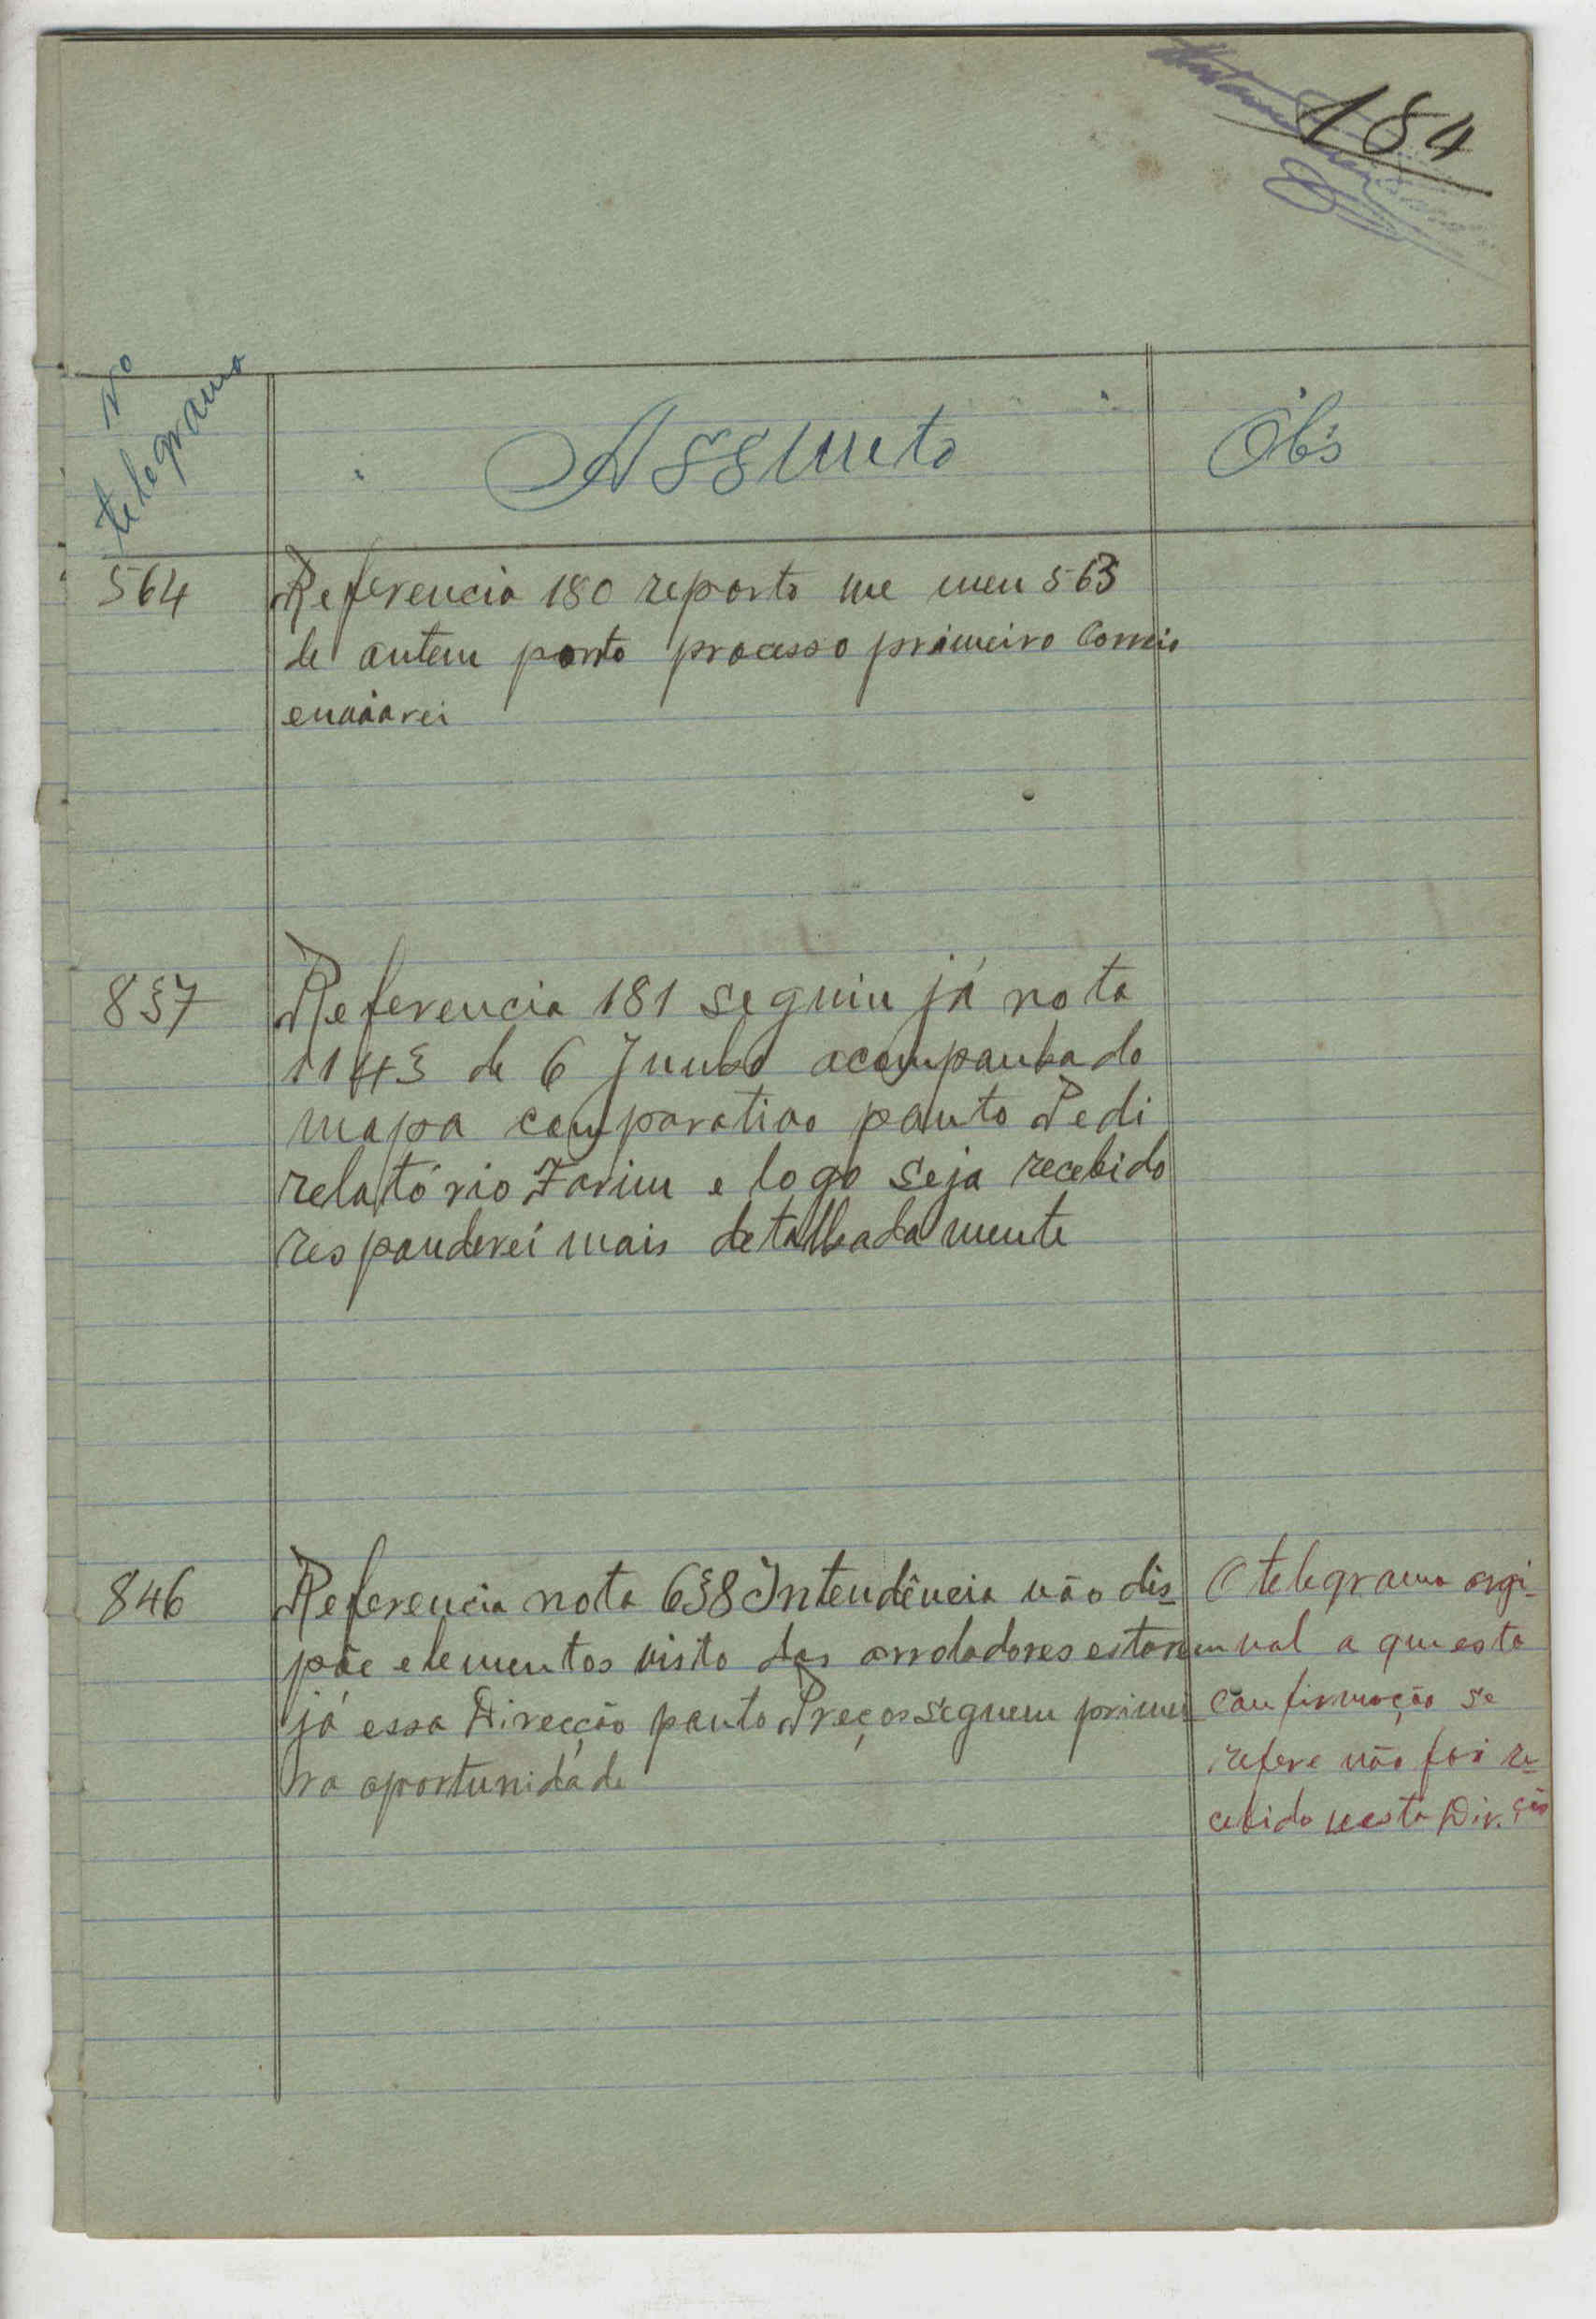 184
Nº
telegrama
Assunto
Obs
564
Referencia 180 reporto me meu 563
de ontem ponto processo primeiro Correio
enviarei
837
Referencia 181 seguiu já nota
1143 de 6 Junho acompanhado
mapa comparativo ponto Pedi
relatório Farim e logo seja recebido
responderei mais detalhadamente
846
Referencia nota 638 Intendência não dis-
põe elementos visto dos arroladores estarem
já essa Direcção ponto Preços seguem primei
ra oportunidade
O telegrama orgi-
nal a que esta
confirmação se
refere não foi re-
cebido nesta Dir.ção